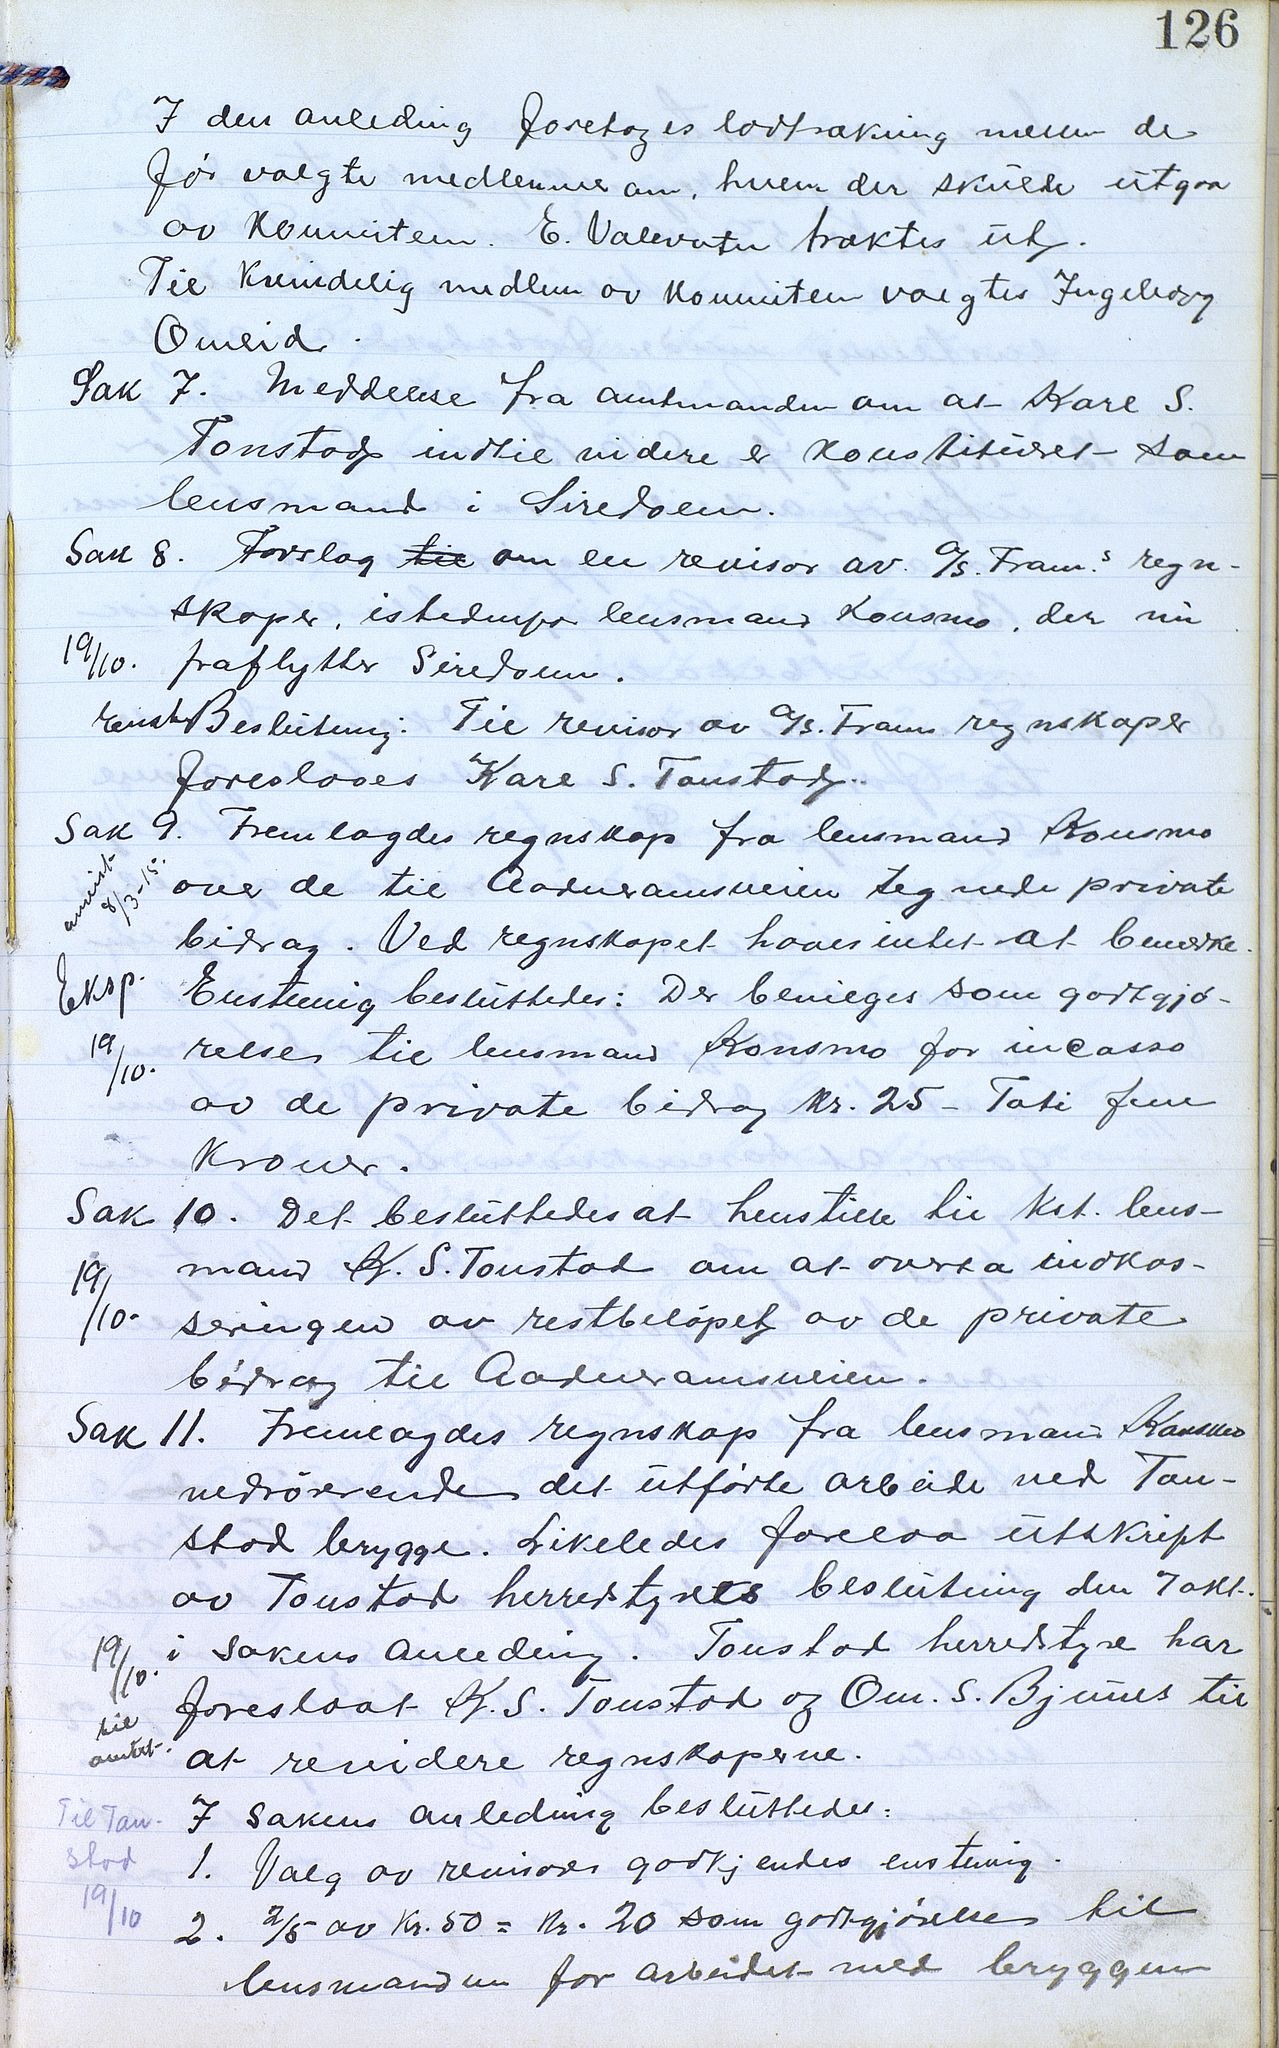 126
I den anleding foretoges lodtrækning mellem de
før valgte medlemmer om, hvem der skulde utgaa
av komiteen. E. Valevatn traktes ut.
Til kvindelig medlem av komiteen valgtes Ingeborg
Omlid.
Sak 7. Meddelelse fra amtmanden om at Kare S.
Tonstad indtil videre er konstitueret som
lensmand i Siredalen.
Sak 8. Forslag til om en revisor av A/S. Fram.s regn-
skaper, istedenfor lensmand Konsmo, der nu
19/10. fraflytter Siredalen.
Enst. Beslutning: Til revisor av A/S. Frams regnskaper
foreslaaes Kare S. Tonstad.
Sak 9. Fremlagdes regnskap fra lensmand Konsmo
anvist 8/3-15. over de til Aadneramsveien tegnede private
bidrag. Ved regnskapet haves intet at bemerke.
Eksp. Enstemig besluttedes: Der bevilges som godtgjø-
19/10. relse til lensmand Konsmo for incasso
av de private bidrag kr. 25 - Tati fem
kroner.
Sak 10. Det besluttedes at henstille til kst. lens-
19/10. mand K. S. Tonstad om at overta indkas-
seringen av restbeløpet av de private
bidrag til Aadneramsveien.
Sak 11. Fremlagdes regnskap fra lensmand Konsmo
vedrørende det utførte arbeide ved Ton-
stad brygge. Likeledes forelaa utskript
av Tonstad herredstyres beslutning den 7 okt.
19/10. i sakens anledning. Tonstad herredstyre har
til amtet. foreslaat K. S. Tonstad og Om. S. Bjunes til
at revidere regnskaperne.
Til Ton- I sakens anledning besluttedes:
stad 1. Valg av revisorer godkjendes enstemig.
19/10 2. 2/5 av kr. 50 = kr. 20 som godtgjørelse til
lensmanden for arbeidet med bryggen